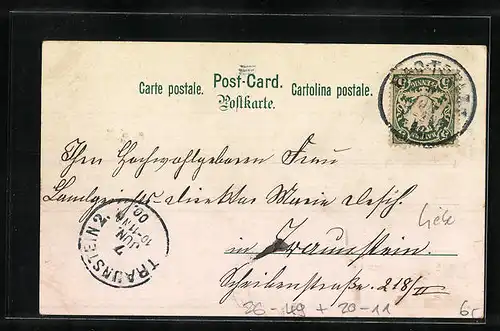 Carte postale. Post-Card. Cartolina postale.
Postkarte.
Ihre Hochwohlgeboren Frau
Landgerichtsdirektor Marie
in Traunstein.
Scheibenstraße 218/II
TRAUNSTEIN 2.
7
JUN.
10-11 N
00
86-49 + 20-11